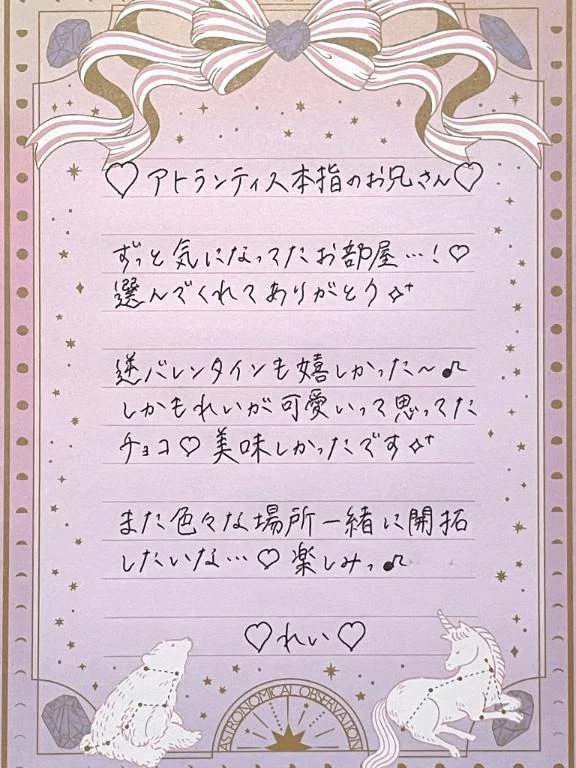 ♡アトランティス本指のお兄さん♡
ずっと気になってたお部屋…!♡
選んでくれてありがとう✧⁺
逆バレンタインも嬉しかった〜♪
しかもれいが可愛いって思ってた
チョコ♡美味しかったです✧⁺
また色々な場所一緒に開拓
したいな…♡楽しみっ♪
♡れい♡
ASTRONOMICAL OBSERVATION